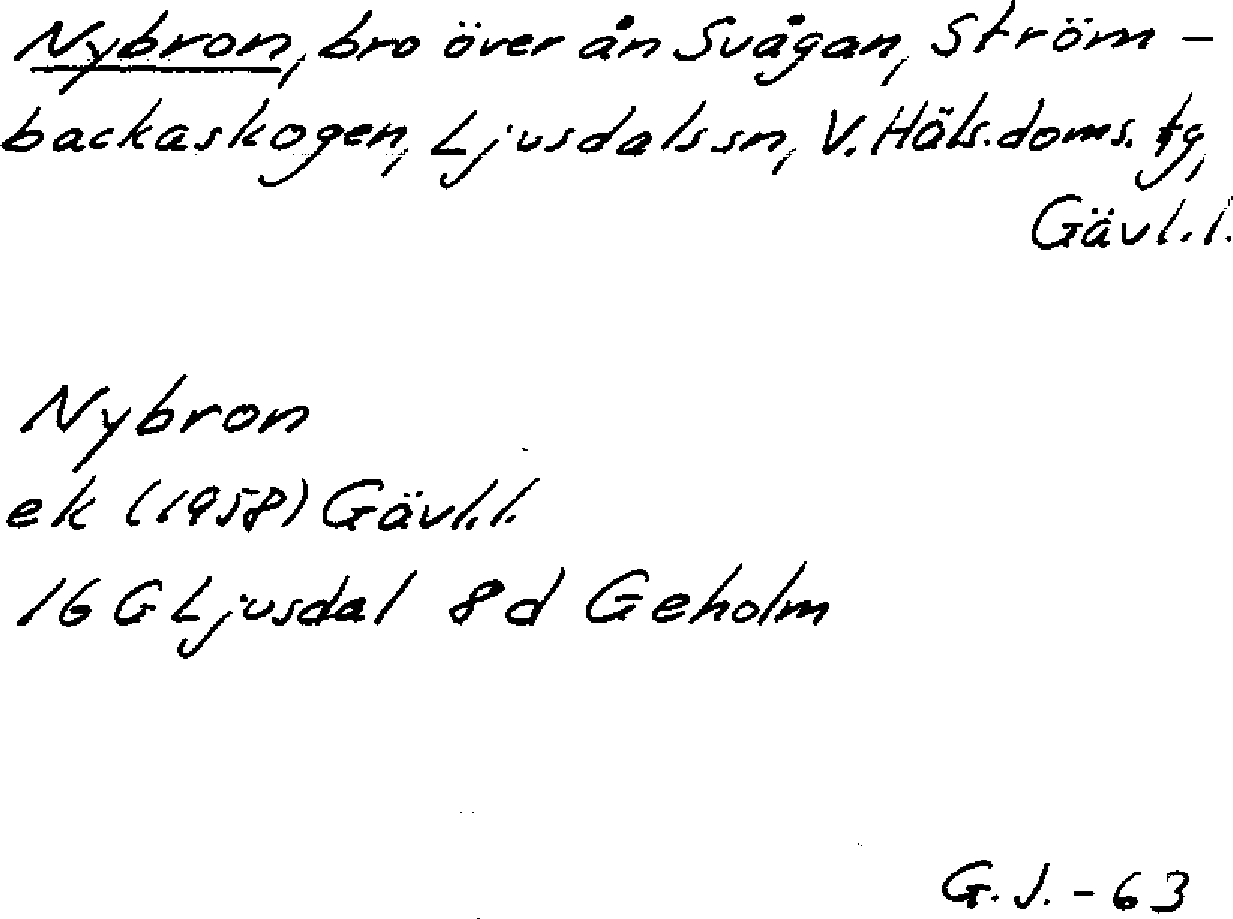 Nybron, bro över ån Svågan, Ström-
backaskogen, Ljusdals sn, V. Häls. doms. tg,
Gävl. l.
Nybron
ek (1958) Gävl. l.
16 G Ljusdal 8d Geholm
G. J. - 63